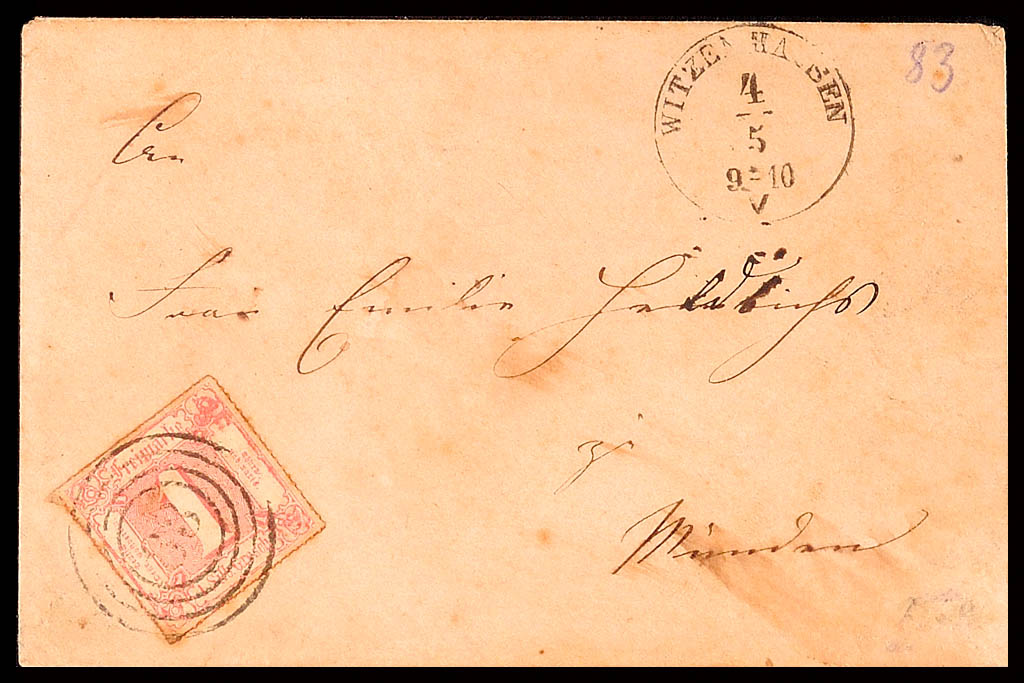 WITZENHAUSEN
4
5
9-10
83
An
Frau Emilie Heidrichs
z
Münden
Freimarke